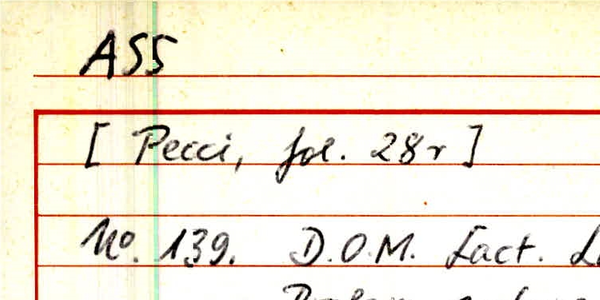 ASS
[ Pecci, fol. 28r ]
No. 139. D.O.M. Fact.